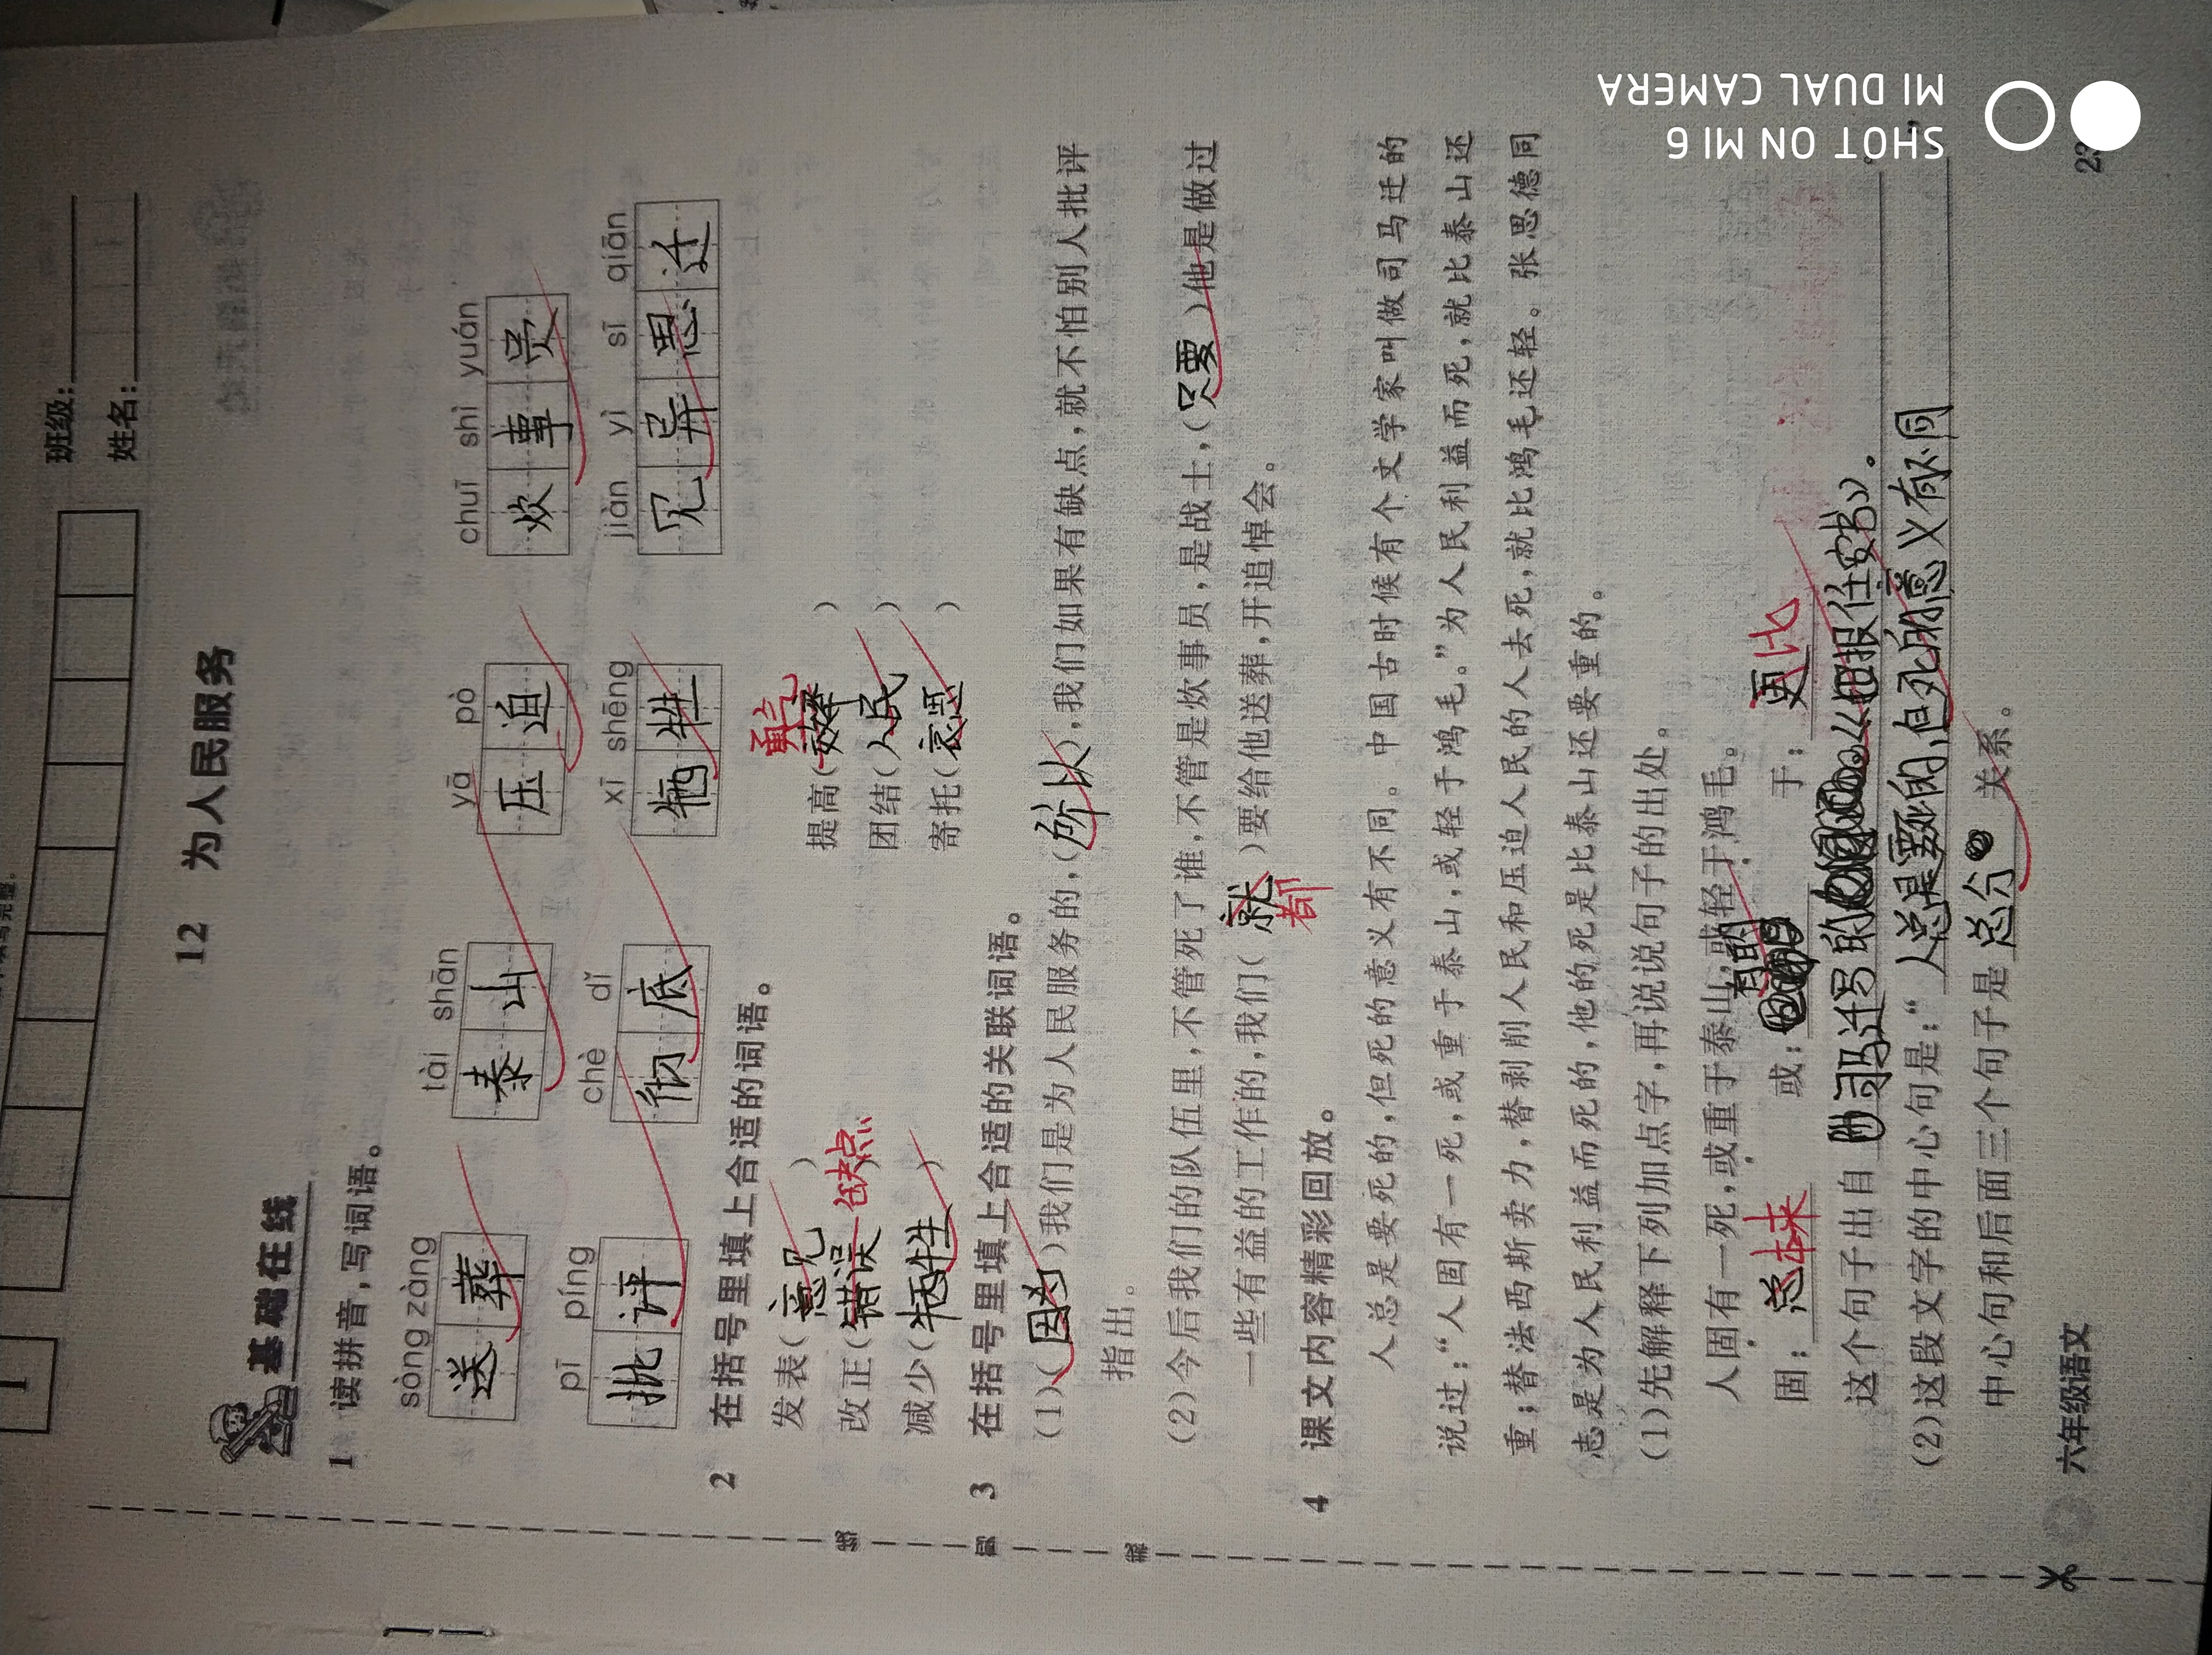 班级:
姓名:
12 为人民服务
基础在线
1 读拼音,写词语。
sòng zàng tài shān yā pò chuī shì yuán
送葬 泰山 压迫 炊事员
pī píng chè dǐ xī shēng jiàn yì sī qiān
批评 彻底 牺牲 见异思迁
2 在括号里填上合适的词语。
发表(意见) 提高(效率) 勇气
改正(错误) 缺点 团结(人民)
减少(牺牲) 寄托(哀思)
3 在括号里填上合适的关联词语。
(1)(因为)我们是为人民服务的,(所以),我们如果有缺点,就不怕别人批评
指出。
(2)今后我们的队伍里,不管死了谁,不管是炊事员,是战士,(只要)他是做过
一些有益的工作的,我们(就)要给他送葬,开追悼会。
都
4 课文内容精彩回放。
人总是要死的,但死的意义有不同。中国古时候有个文学家叫做司马迁的
说过:“人固有一死,或重于泰山,或轻于鸿毛。”为人民利益而死,就比泰山还
重;替法西斯卖力,替剥削人民和压迫人民的人去死,就比鸿毛还轻。张思德同
志是为人民利益而死的,他的死是比泰山还要重的。
(1)先解释下列加点字,再说说句子的出处。
人固有一死,或重于泰山,或轻于鸿毛。
固:总 本来 或:有的 于:更 比
这个句子出自 司马迁写的《报任安书》。
(2)这段文字的中心句是:“人总是要死的,但死的意义有不同
中心句和后面三个句子是 总分 关系。
六年级语文
23
裁 剪 线
SHOT ON MI 6
MI DUAL CAMERA